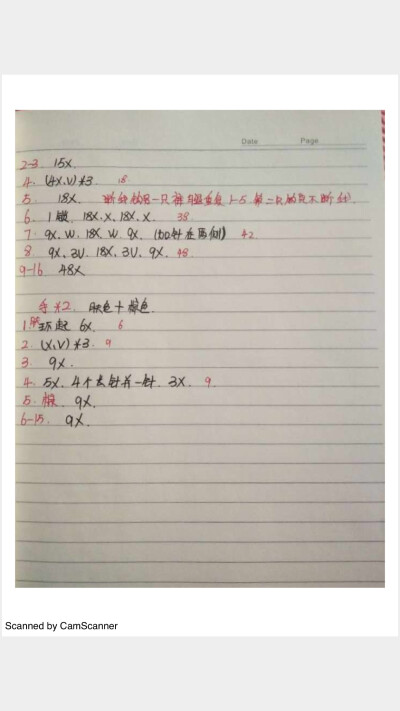 Date Page
2-3. 15X.
4. (4X.V)*3. 18.
5. 18X. 断线钩另一只裤腿重复1-5 第二只钩完不断线).
6. 1锁. 18X.X.18X.X. 38.
7. 9X.W.18X.W.9X. (加针在两侧) 42.
8. 9X.3V.18X.3V.9X. 48
9-16. 48X
手*2. 肤色+棕色.
1. 肤 环起 6X. 6
2. (X,V)*3. 9
3. 9X.
4. 5X. 4个长针并一针. 3X. 9.
5. 棕. 9X.
6-15. 9X.
Scanned by CamScanner